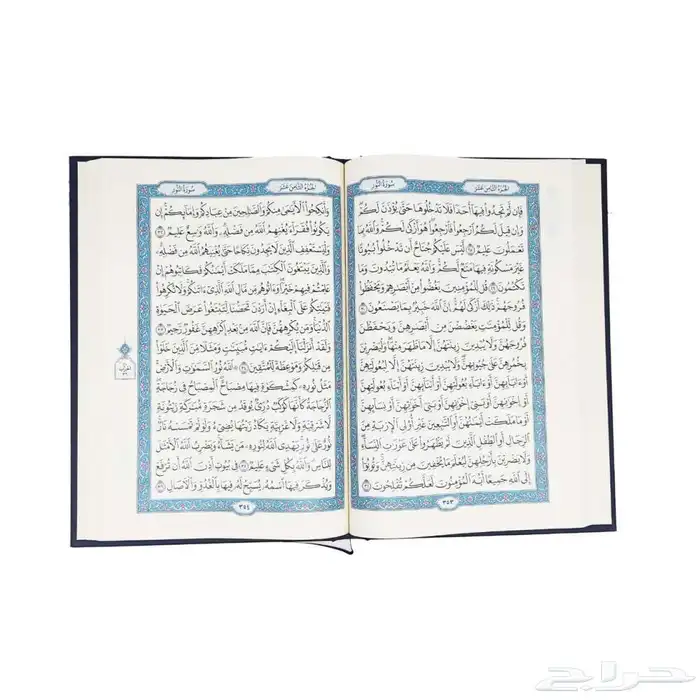 الجزء الثامن عشر
سورة النور
فَإِن لَّمْ تَجِدُوا۟ فِيهَآ أَحَدًا فَلَا تَدْخُلُوهَا حَتَّىٰ يُؤْذَنَ لَكُمْ
وَإِن قِيلَ لَكُمُ ٱرْجِعُوا۟ فَٱرْجِعُوا۟ هُوَ أَزْكَىٰ لَكُمْ وَٱللَّهُ بِمَا
تَعْمَلُونَ عَلِيمٌ ٢٨ لَّيْسَ عَلَيْكُمْ جُنَاحٌ أَن تَدْخُلُوا۟ بُيُوتًا
غَيْرَ مَسْكُونَةٍ فِيهَا مَتَٰعٌ لَّكُمْ وَٱللَّهُ يَعْلَمُ مَا تُبْدُونَ وَمَا
تَكْتُمُونَ ٢٩ قُل لِّلْمُؤْمِنِينَ يَغُضُّوا۟ مِنْ أَبْصَٰرِهِمْ وَيَحْفَظُوا۟
فُرُوجَهُمْ ذَٰلِكَ أَزْكَىٰ لَهُمْ إِنَّ ٱللَّهَ خَبِيرٌۢ بِمَا يَصْنَعُونَ ٣٠
وَقُل لِّلْمُؤْمِنَٰتِ يَغْضُضْنَ مِنْ أَبْصَٰرِهِنَّ وَيَحْفَظْنَ
فُرُوجَهُنَّ وَلَا يُبْدِينَ زِينَتَهُنَّ إِلَّا مَا ظَهَرَ مِنْهَا وَلْيَضْرِبْنَ
بِخُمُرِهِنَّ عَلَىٰ جُيُوبِهِنَّ وَلَا يُبْدِينَ زِينَتَهُنَّ إِلَّا لِبُعُولَتِهِنَّ
أَوْ ءَابَآئِهِنَّ أَوْ ءَابَآءِ بُعُولَتِهِنَّ أَوْ أَبْنَآئِهِنَّ أَوْ أَبْنَآءِ بُعُولَتِهِنَّ
أَوْ إِخْوَٰنِهِنَّ أَوْ بَنِىٓ إِخْوَٰنِهِنَّ أَوْ بَنِىٓ أَخَوَٰتِهِنَّ أَوْ نِسَآئِهِنَّ
أَوْ مَا مَلَكَتْ أَيْمَٰنُهُنَّ أَوِ ٱلتَّٰبِعِينَ غَيْرِ أُو۟لِى ٱلْإِرْبَةِ مِنَ
ٱلرِّجَالِ أَوِ ٱلطِّفْلِ ٱلَّذِينَ لَمْ يَظْهَرُوا۟ عَلَىٰ عَوْرَٰتِ ٱلنِّسَآءِ
وَلَا يَضْرِبْنَ بِأَرْجُلِهِنَّ لِيُعْلَمَ مَا يُخْفِينَ مِن زِينَتِهِنَّ وَتُوبُوٓا۟
إِلَى ٱللَّهِ جَمِيعًا أَيُّهَ ٱلْمُؤْمِنُونَ لَعَلَّكُمْ تُفْلِحُونَ ٣١
٣٥٣
الجزء الثامن عشر
سورة النور
وَأَنكِحُوا۟ ٱلْأَيَٰمَىٰ مِنكُمْ وَٱلصَّٰلِحِينَ مِنْ عِبَادِكُمْ وَإِمَآئِكُمْ إِن
يَكُونُوا۟ فُقَرَآءَ يُغْنِهِمُ ٱللَّهُ مِن فَضْلِهِۦ وَٱللَّهُ وَٰسِعٌ عَلِيمٌ ٣٢
وَلْيَسْتَعْفِفِ ٱلَّذِينَ لَا يَجِدُونَ نِكَاحًا حَتَّىٰ يُغْنِيَهُمُ ٱللَّهُ مِن فَضْلِهِۦ
وَٱلَّذِينَ يَبْتَغُونَ ٱلْكِتَٰبَ مِمَّا مَلَكَتْ أَيْمَٰنُكُمْ فَكَاتِبُوهُمْ إِنْ
عَلِمْتُمْ فِيهِمْ خَيْرًا وَءَاتُوهُم مِّن مَّالِ ٱللَّهِ ٱلَّذِىٓ ءَاتَىٰكُمْ وَلَا تُكْرِهُوا۟
فَتَيَٰتِكُمْ عَلَى ٱلْبِغَآءِ إِنْ أَرَدْنَ تَحَصُّنًا لِّتَبْتَغُوا۟ عَرَضَ ٱلْحَيَوٰةِ
ٱلدُّنْيَا وَمَن يُكْرِههُّنَّ فَإِنَّ ٱللَّهَ مِنۢ بَعْدِ إِكْرَٰهِهِنَّ غَفُورٌ رَّحِيمٌ ٣٣
وَلَقَدْ أَنزَلْنَآ إِلَيْكُمْ ءَايَٰتٍ مُّبَيِّنَٰتٍ وَمَثَلًا مِّنَ ٱلَّذِينَ خَلَوْا۟
مِن قَبْلِكُمْ وَمَوْعِظَةً لِّلْمُتَّقِينَ ٣٤ ٱللَّهُ نُورُ ٱلسَّمَٰوَٰتِ وَٱلْأَرْضِ
مَثَلُ نُورِهِۦ كَمِشْكَوٰةٍ فِيهَا مِصْبَاحٌ ٱلْمِصْبَاحُ فِى زُجَاجَةٍ
ٱلزُّجَاجَةُ كَأَنَّهَا كَوْكَبٌ دُرِّىٌّ يُوقَدُ مِن شَجَرَةٍ مُّبَٰرَكَةٍ زَيْتُونَةٍ
لَّا شَرْقِيَّةٍ وَلَا غَرْبِيَّةٍ يَكَادُ زَيْتُهَا يُضِىٓءُ وَلَوْ لَمْ تَمْسَسْهُ نَارٌ
نُّورٌ عَلَىٰ نُورٍ يَهْدِى ٱللَّهُ لِنُورِهِۦ مَن يَشَآءُ وَيَضْرِبُ ٱللَّهُ ٱلْأَمْثَٰلَ
لِلنَّاسِ وَٱللَّهُ بِكُلِّ شَىْءٍ عَلِيمٌ ٣٥ فِى بُيُوتٍ أَذِنَ ٱللَّهُ أَن تُرْفَعَ
وَيُذْكَرَ فِيهَا ٱسْمُهُۥ يُسَبِّحُ لَهُۥ فِيهَا بِٱلْغُدُوِّ وَٱلْءَاصَالِ ٣٦
٣٥٤
حراج